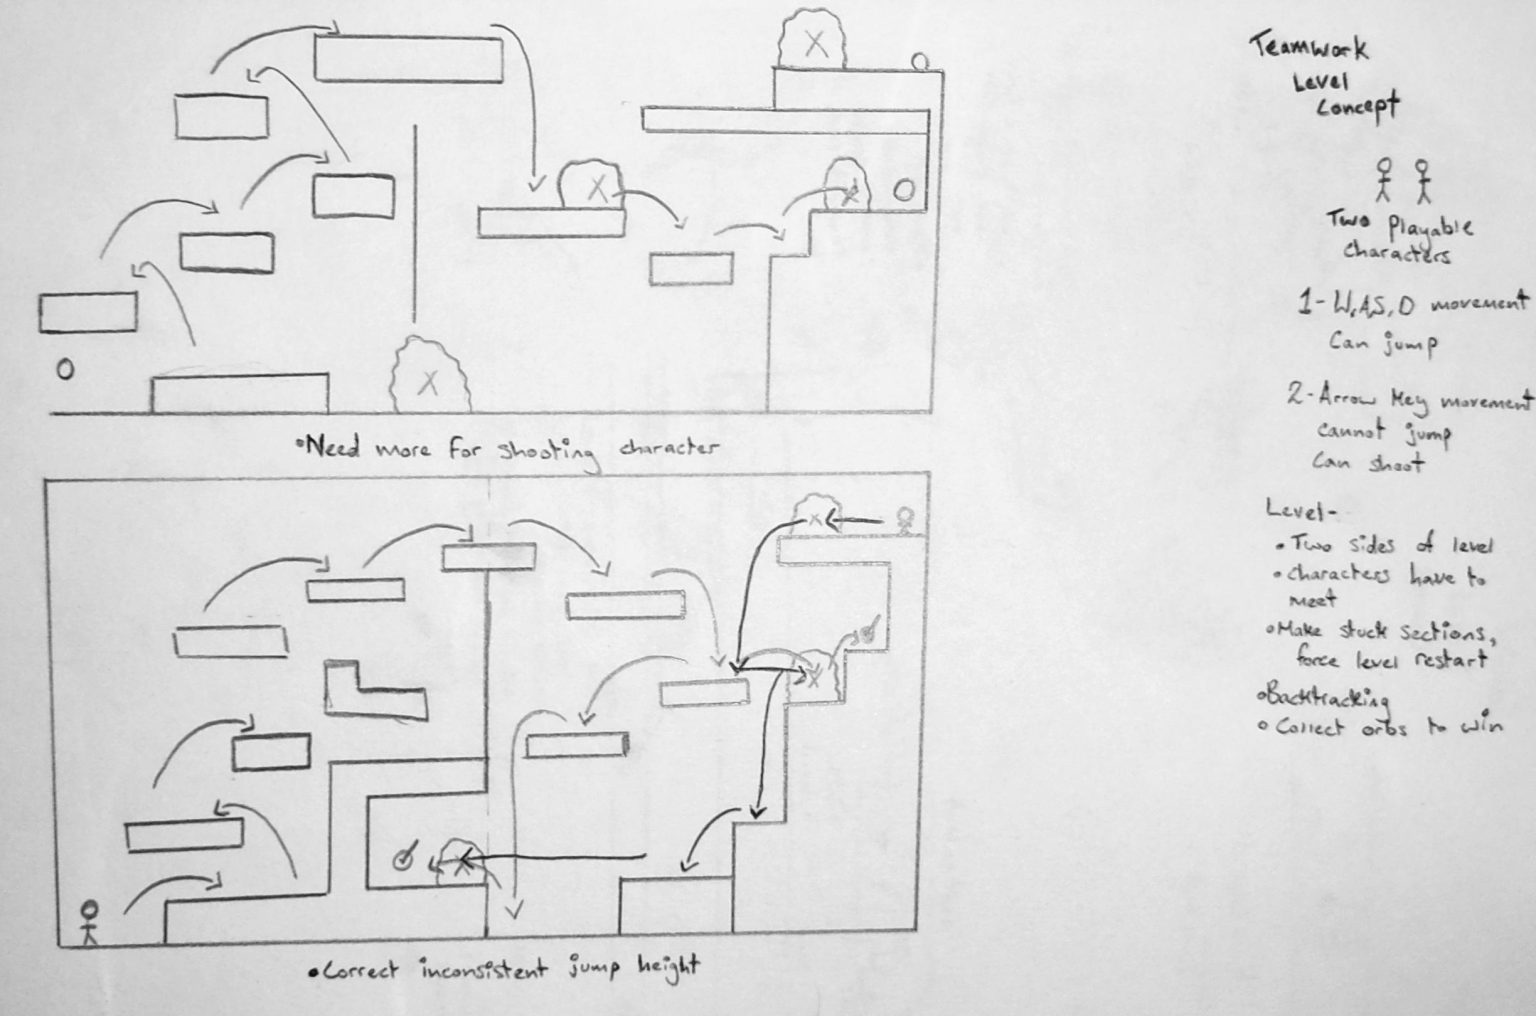 Teamwork
Level
Concept
Two Playable
characters
1- W,A,S,D movement
Can jump
2- Arrow Key movement
cannot jump
Can shoot
Level-
• Two sides of level
• characters have to
meet
• Make stuck sections,
force level restart
• Backtracking
• Collect orbs to win
• Need more for shooting character
• Correct inconsistent jump height